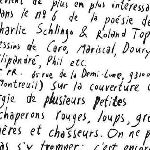 devient de plus en plus intéressa
dans le n° 6 de la poésie de
Charlie Schlingo & Roland Top
essins de Caro, Mariscal, Doury
Filipandré, Phil etc.
FR. 65 rue de la Demi-Lune, 93100
Montreuil) Sur la couverture
rgie de plusieurs petites
Chaperons rouges, loups, gr
mères et chasseurs. On ne p
pas s'y tromper: c'est